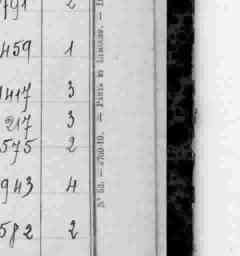 791 2
459 1
1417 3
217 3
575 2
943 4
582 2
N° 52. — 4760-19. — Paris et Limoges. —